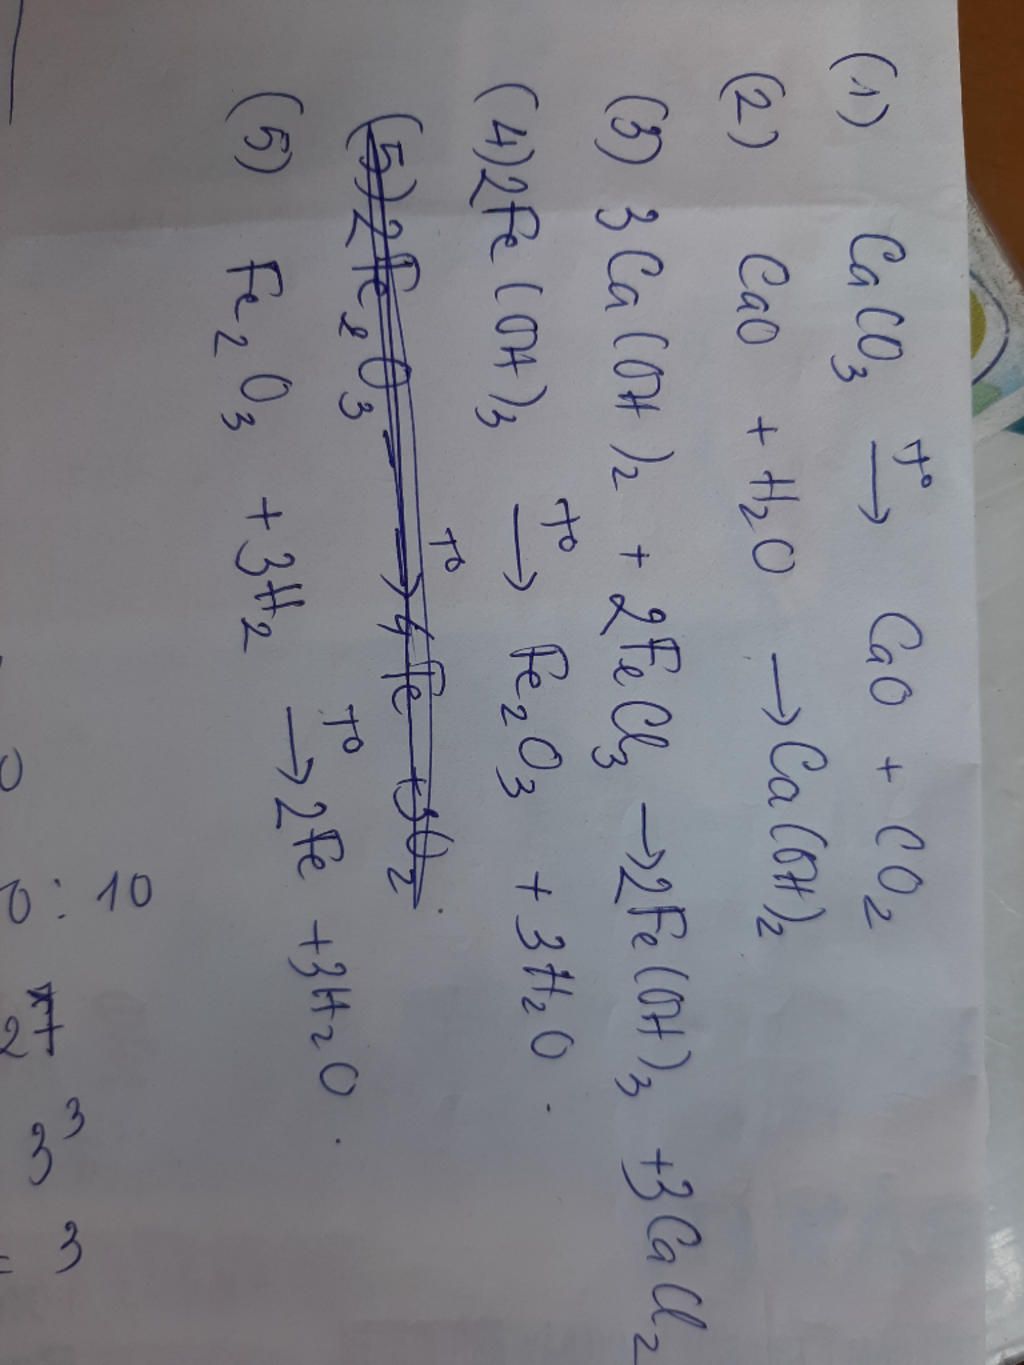 (1) CaCO₃ →T° CaO + CO₂
(2) CaO + H₂O → Ca(OH)₂
(3) 3Ca(OH)₂ + 2FeCl₃ → 2Fe(OH)₃ + 3CaCl₂
(4) 2Fe(OH)₃ →T° Fe₂O₃ + 3H₂O.
(5) 2Fe₂O₃ →T° 4Fe + 3O₂.
(5) Fe₂O₃ + 3H₂ →T° 2Fe + 3H₂O.
: 10
27
3³
3